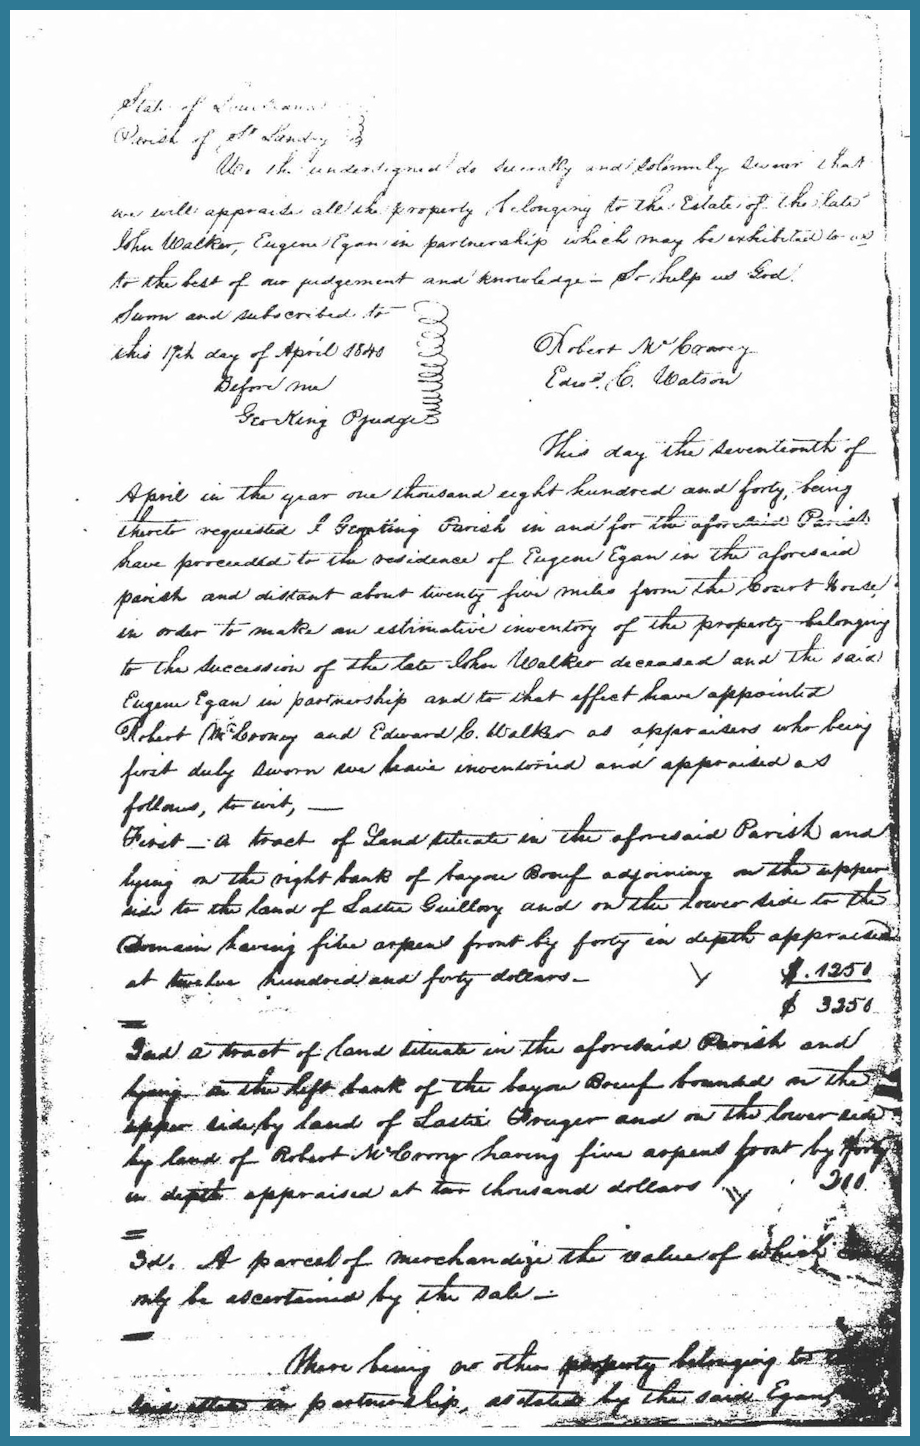 State of Louisiana
Parish of St Landry
We the undersigned do severally and solemnly swear that
we will appraise all the property belonging to the Estate of the late
John Walker, Eugene Egan in partnership which may be exhibited to us
to the best of our judgement and knowledge — So help us God.
Sworn and subscribed to
this 17th day of April 1840
Robert McCrorey
Before me
Edwd. C. Watson
Geo King Pjudge
This day the seventeenth of
April in the year one thousand eight hundred and forty, being
thereto requested I Geo King Parish in and for the aforesaid Parish
have proceeded to the residence of Eugene Egan in the aforesaid
parish and distant about twenty five miles from the Court House,
in order to make an estimative inventory of the property belonging
to the succession of the late John Walker deceased and the said
Eugene Egan in partnership and to that effect have appointed
Robert McCroney and Edward C. Walker as appraisers who being
first duly sworn we have inventoried and appraised as
follows, to wit, —
First — A tract of Land situate in the aforesaid Parish and
lying on the right bank of bayou Boeuf adjoining on the upper
side to the land of Lastie Guillory and on the lower side to the
Domain having five arpens front by forty in depth appraised
at twelve hundred and forty dollars — $.1250
$ 3250
2nd A tract of land situate in the aforesaid Parish and
lying on the left bank of the bayou Boeuf bounded on the
upper side by land of Lastie Fruger and on the lower side
by land of Robert McCrory having five arpens front by forty
in depth appraised at two thousand dollars 200
3d. A parcel of merchandize the value of which can
only be ascertained by the sale —
There being no other property belonging to
said in partnership, as stated by the said Egan,